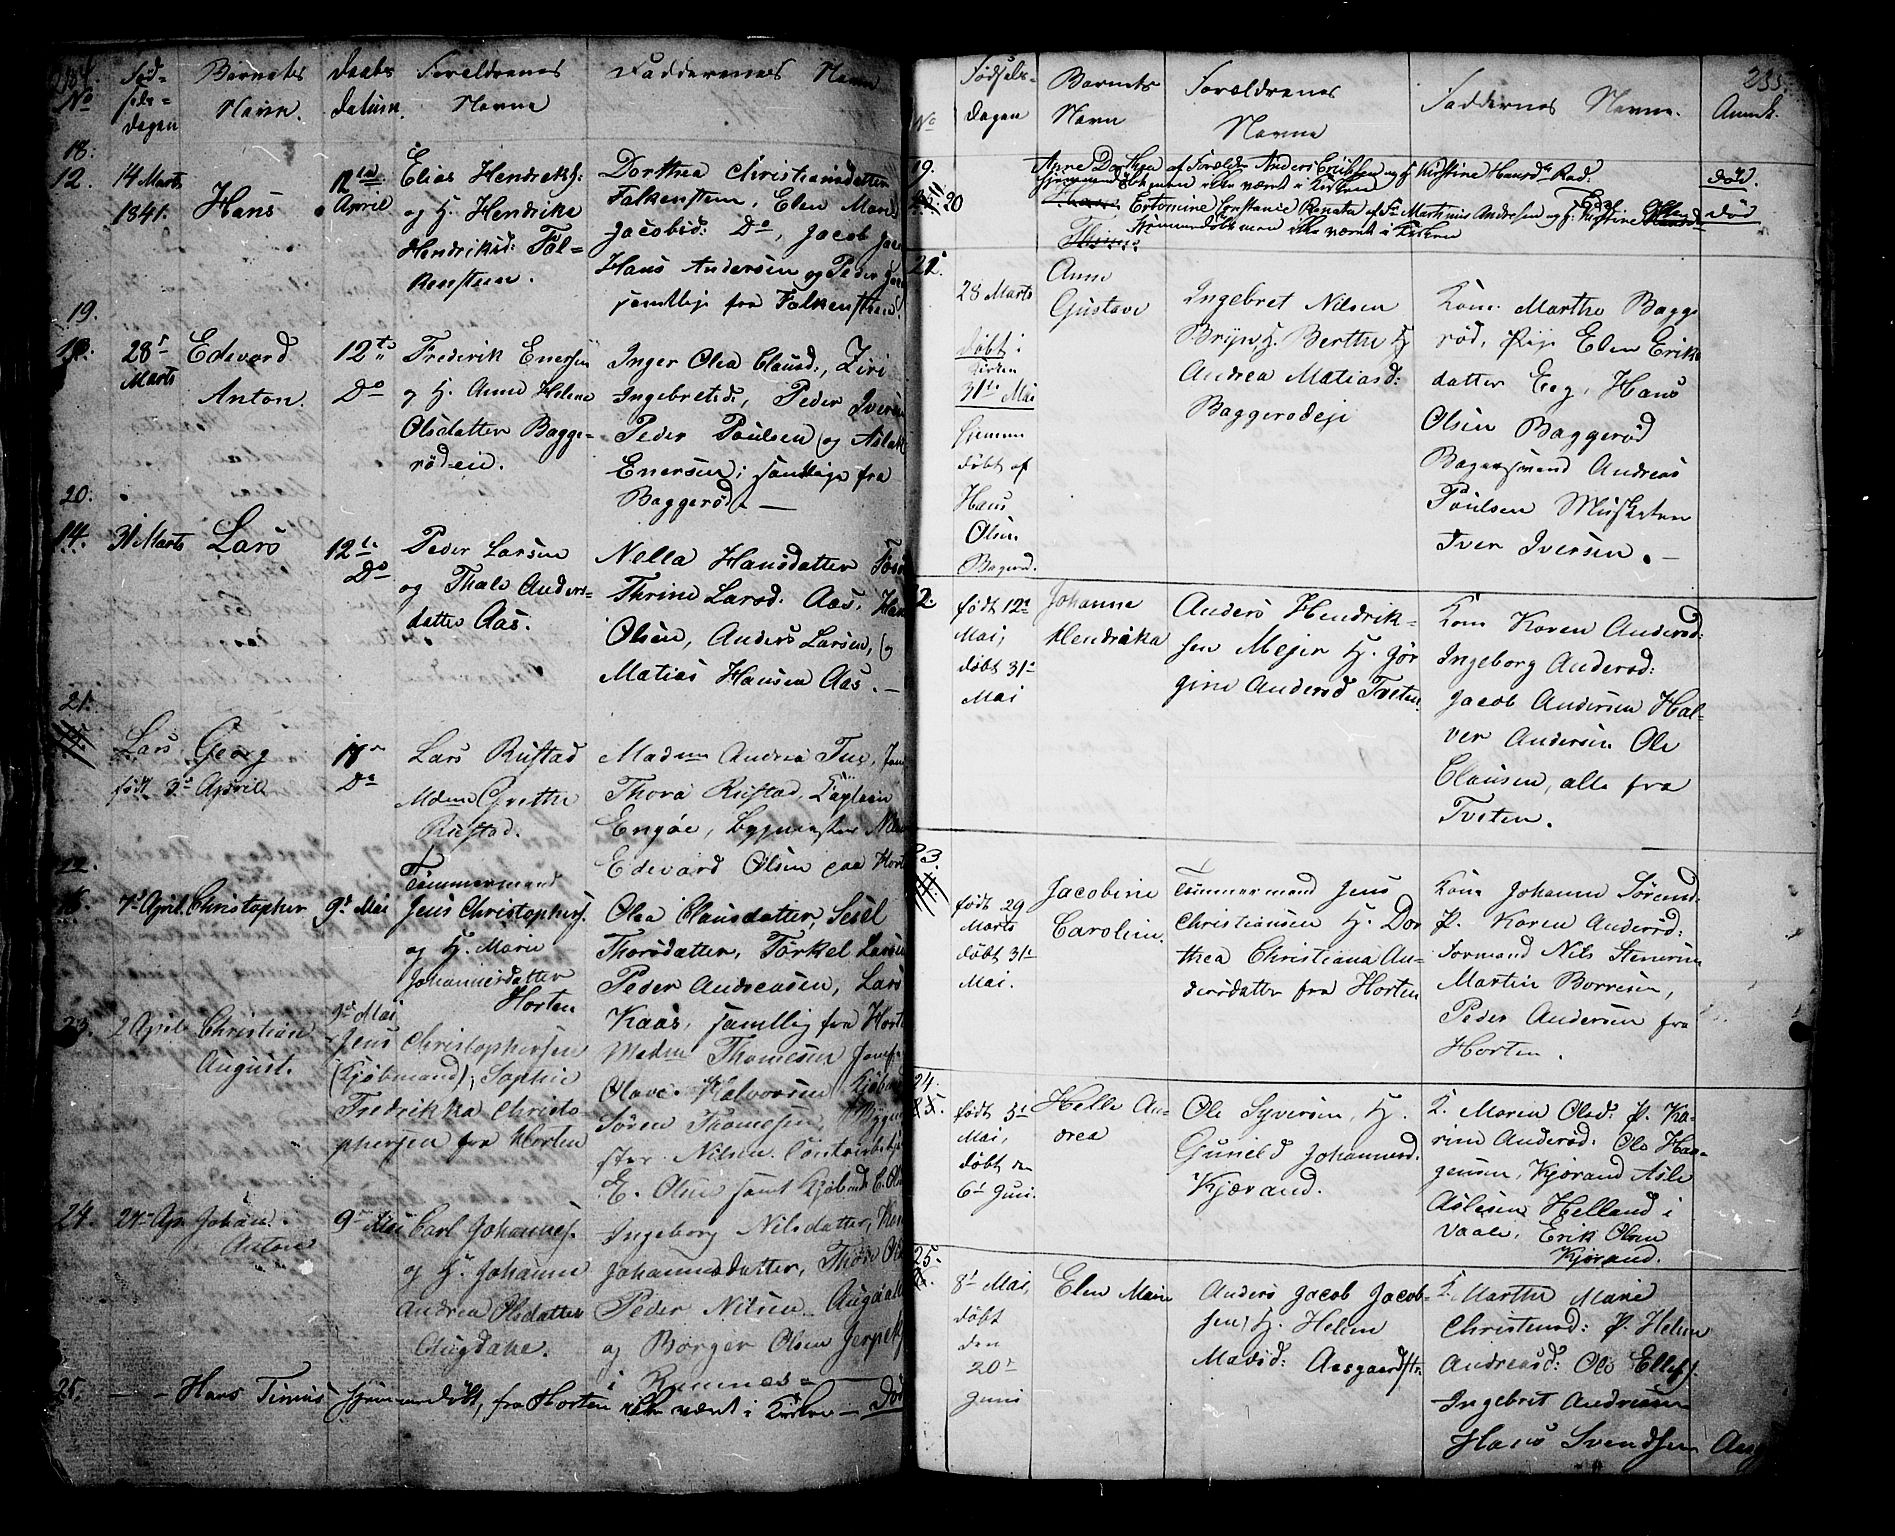 No
Fød-
sels-
dagen
Barnets
Navn.
Daabs
datum.
Forældrenes
Navne
Faddernes Navne
18.
12.
14 Marts
1841.
Hans
12te
April
Elias Hendriks:
og H. Hendrikke
Hendriksd: Fal-
kensteen.
Dorthea Christiansdatter
Falkensteen, Elen Marie
Jacobsd: Do, Jacob
Hans Andersen og Peder
samtlige fra Falkensteen.
19.
28
Marts
Edevard
Anton.
12te
Do
Frederik Enersen
og H. Anne Helene
Olsdatter Bagge-
rødeie.
Inger Olea Clausd:, Siri
Ingebretsd:, Peder Iversen
Peder Poulsen og Aslak
Enersen; samtlige fra
Baggerød. —
20.
14.
31 Marts
Lars
12te
Do
Peder Larsen
og Thale Anders-
datter Aas.
Nella Hansdatter
Thrine Larsd: Aas, Hans
Olsen, Anders Larsen, og
Matias Hansen Aas. —
21.
Lars Georg
født 3d April
Do
Lars Rustad
Mdme Grethe
Rustad.
Madme Andrea
Thora Rustad, Captain
Engøe,
Edevard Olsen paa Horten
16.
7d April
Christopher
9d Mai
Tømmermand
Jens Christophers.
og H. Marie
Johannesdatter
Horten
Olea Clausdatter, Sesel
Thorsdatter, Torkel Larsen
Peder Andreasen, Lars
Kaas, samtlig fra Horten
23.
2 April
Christian
August.
9d Mai
Jens Christophersen
(Kjøbmand); Sophie
Fredrikka Christo
phersen fra Horten
Madm Thomesen
Olave Halvorsen
Søren Thomesen,
Nilsen
E. Olsen samt Kjøbmd
24.
27 Ap
Johan
Anton
9 Mai
Carl Johannes.
og H. Johanne
Andrea Olsdatter
Augdahe.
Ingeborg Nilsdatter,
Johannesdatter, Thore
Peder Nilsen
og Børger Olsen
i Ramnes —
25.
— - Hans Timius hjemmedøbt, fra Horten ikke været i Kirken — død
235.
No
Fødsels-
dagen
Barnets
Navn
Forældrenes
Navne
Faddernes Navne.
Anmk.
19.
Anne Dorthea af Foræld: Anders og Kirstine Hansdtr
hjemmedøbt men ikke været i Kirken
død.
20
Ertomine Constanie Renata af Martinus Andresen og Kirstine
hjemmedøbt men ikke været i Kirken
død
21.
28 Marts
døbt i
Kirken
31te Mai
hjemme
døbt af
Hans
Olsen
Bagerød.
Anne
Gustave
Ingebret Nilsen
H. Berthe
Andrea Matiasd:
Baggerødeje
Kone Marthe Bagge
rød, Pige Elen Eriks
datter Eeg, Hans
Olsen Baggerød
Andreas
Poulsen
Iver Iversen. —
født 12
Mai,
døbt 31
Mai
Johanne
Hendrikka
Anders Hendrik-
sen Mejer H. Jør
gine Andersd Tveten
Kone Karen Andersd:
Ingeborg Andersd:
Jacob Andersen Hal-
ver Andersen Ole
Clausen, alle fra
Tveten.
23.
født 29
Marts
døbt 31
Mai.
Jacobine
Caroline.
Tømmermand Jens
Christiansen H. Dor
thea Christiana An-
dersdatter fra Horten
Kone Johanne Sørensd:
P. Karen Andersd:
Formand Nils Stenersen
Martin Borresen,
Peder Andersen fra
Horten.
24.
født 5d
Mai,
døbt den
6d Juni.
Helle An-
drea
Ole Syversen, H.
Gunild Johannesd.
Kjærand.
K. Maren Olsd: P. Ka-
rine Andersd: Ole Haa-
gensen, Kjørand Asle
Aslesen Helland i
Vaale, Erik Olsen
Kjørand.
25.
8d Mai,
døbt
den
20
Juni
Elen Marie
Anders Jacob Jacob-
sen, H. Helene
Madsd: Aasgaardstr.
K. Marthe Marie
Christensd: P. Helene
Andreasd: Ole Ellefs.
Ingebret Andresen
Hans Svendsen